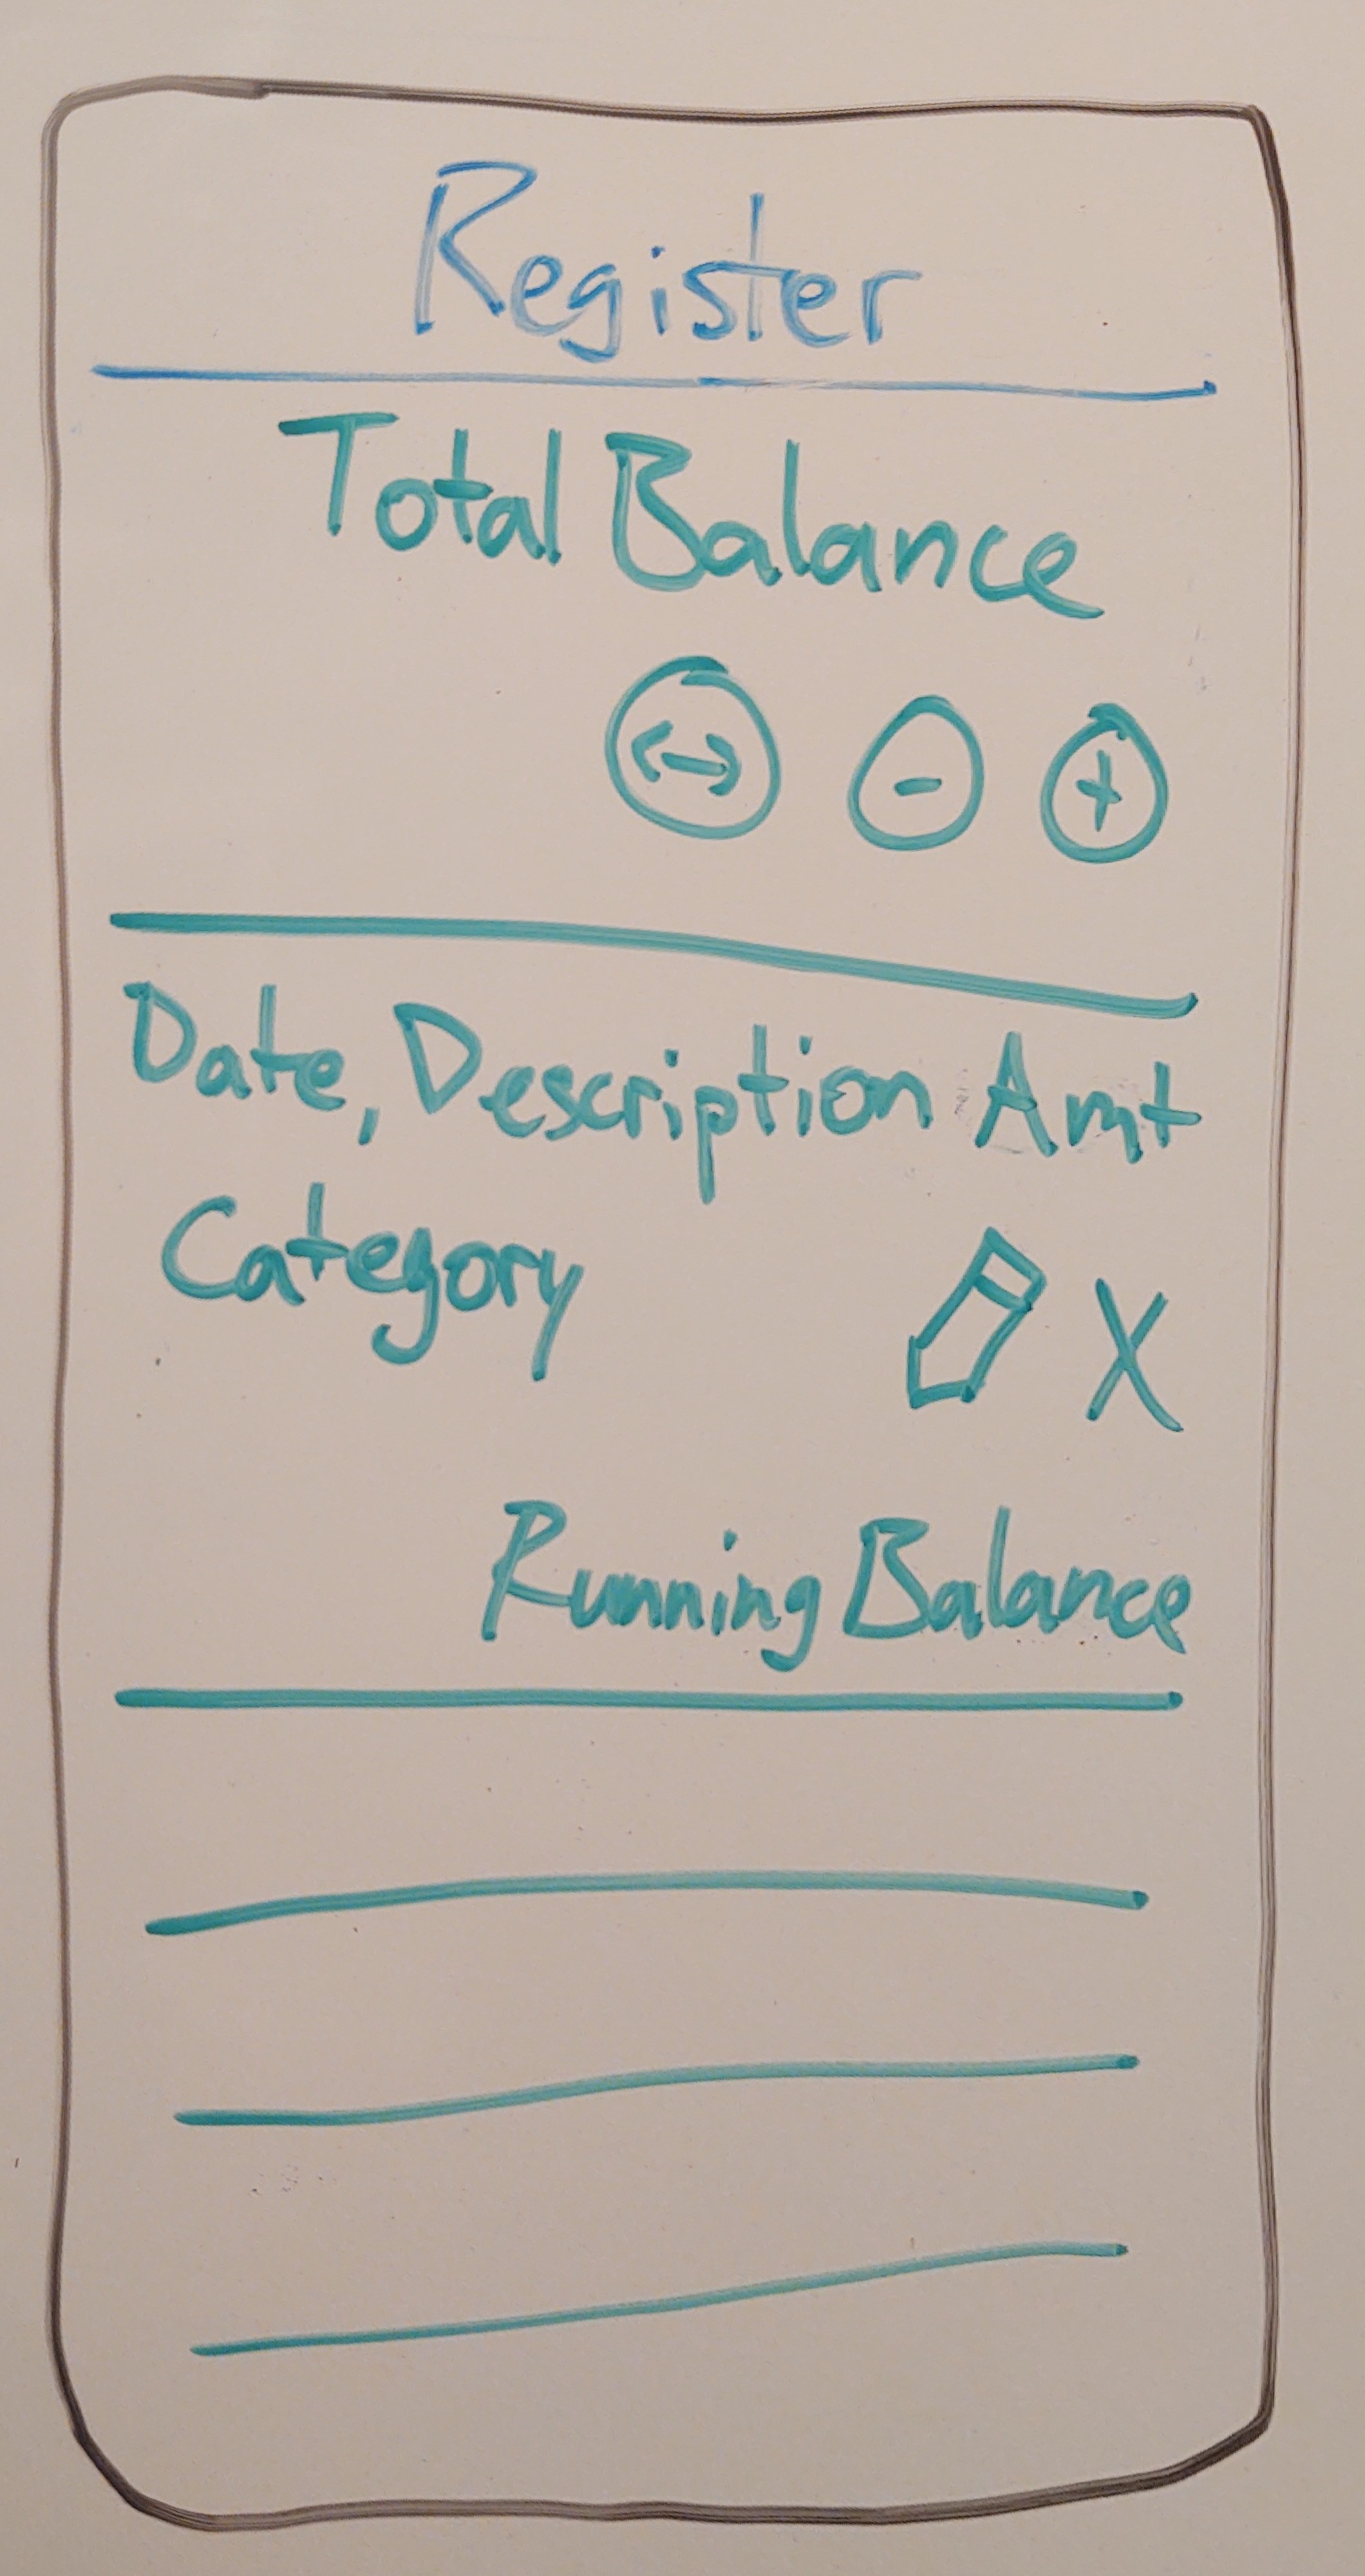 Register
Total Balance
↔ - +
Date, Description Amt
Category X
Running Balance